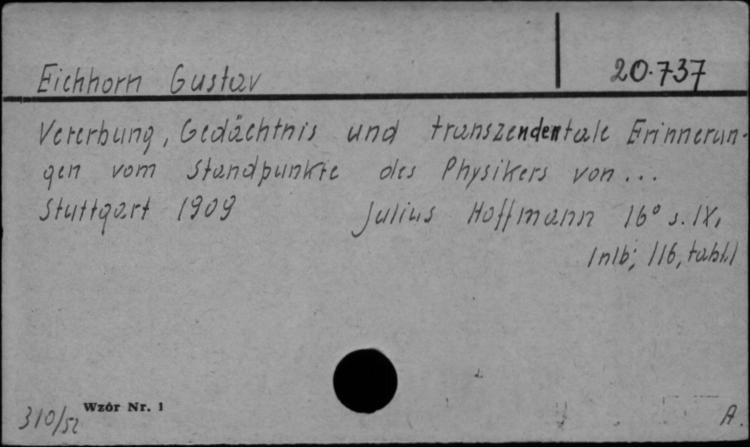 Eichhorn Gustav 20.737
Vererbung, Gedächtnis und transzendentale Erinnerun-
gen vom Standpunkte des Physikers von...
Stuttgart 1909 Julius Hoffmann 16° s. IX,
1nlb; 116, tabl.1
310/52 Wzór Nr. 1 A.